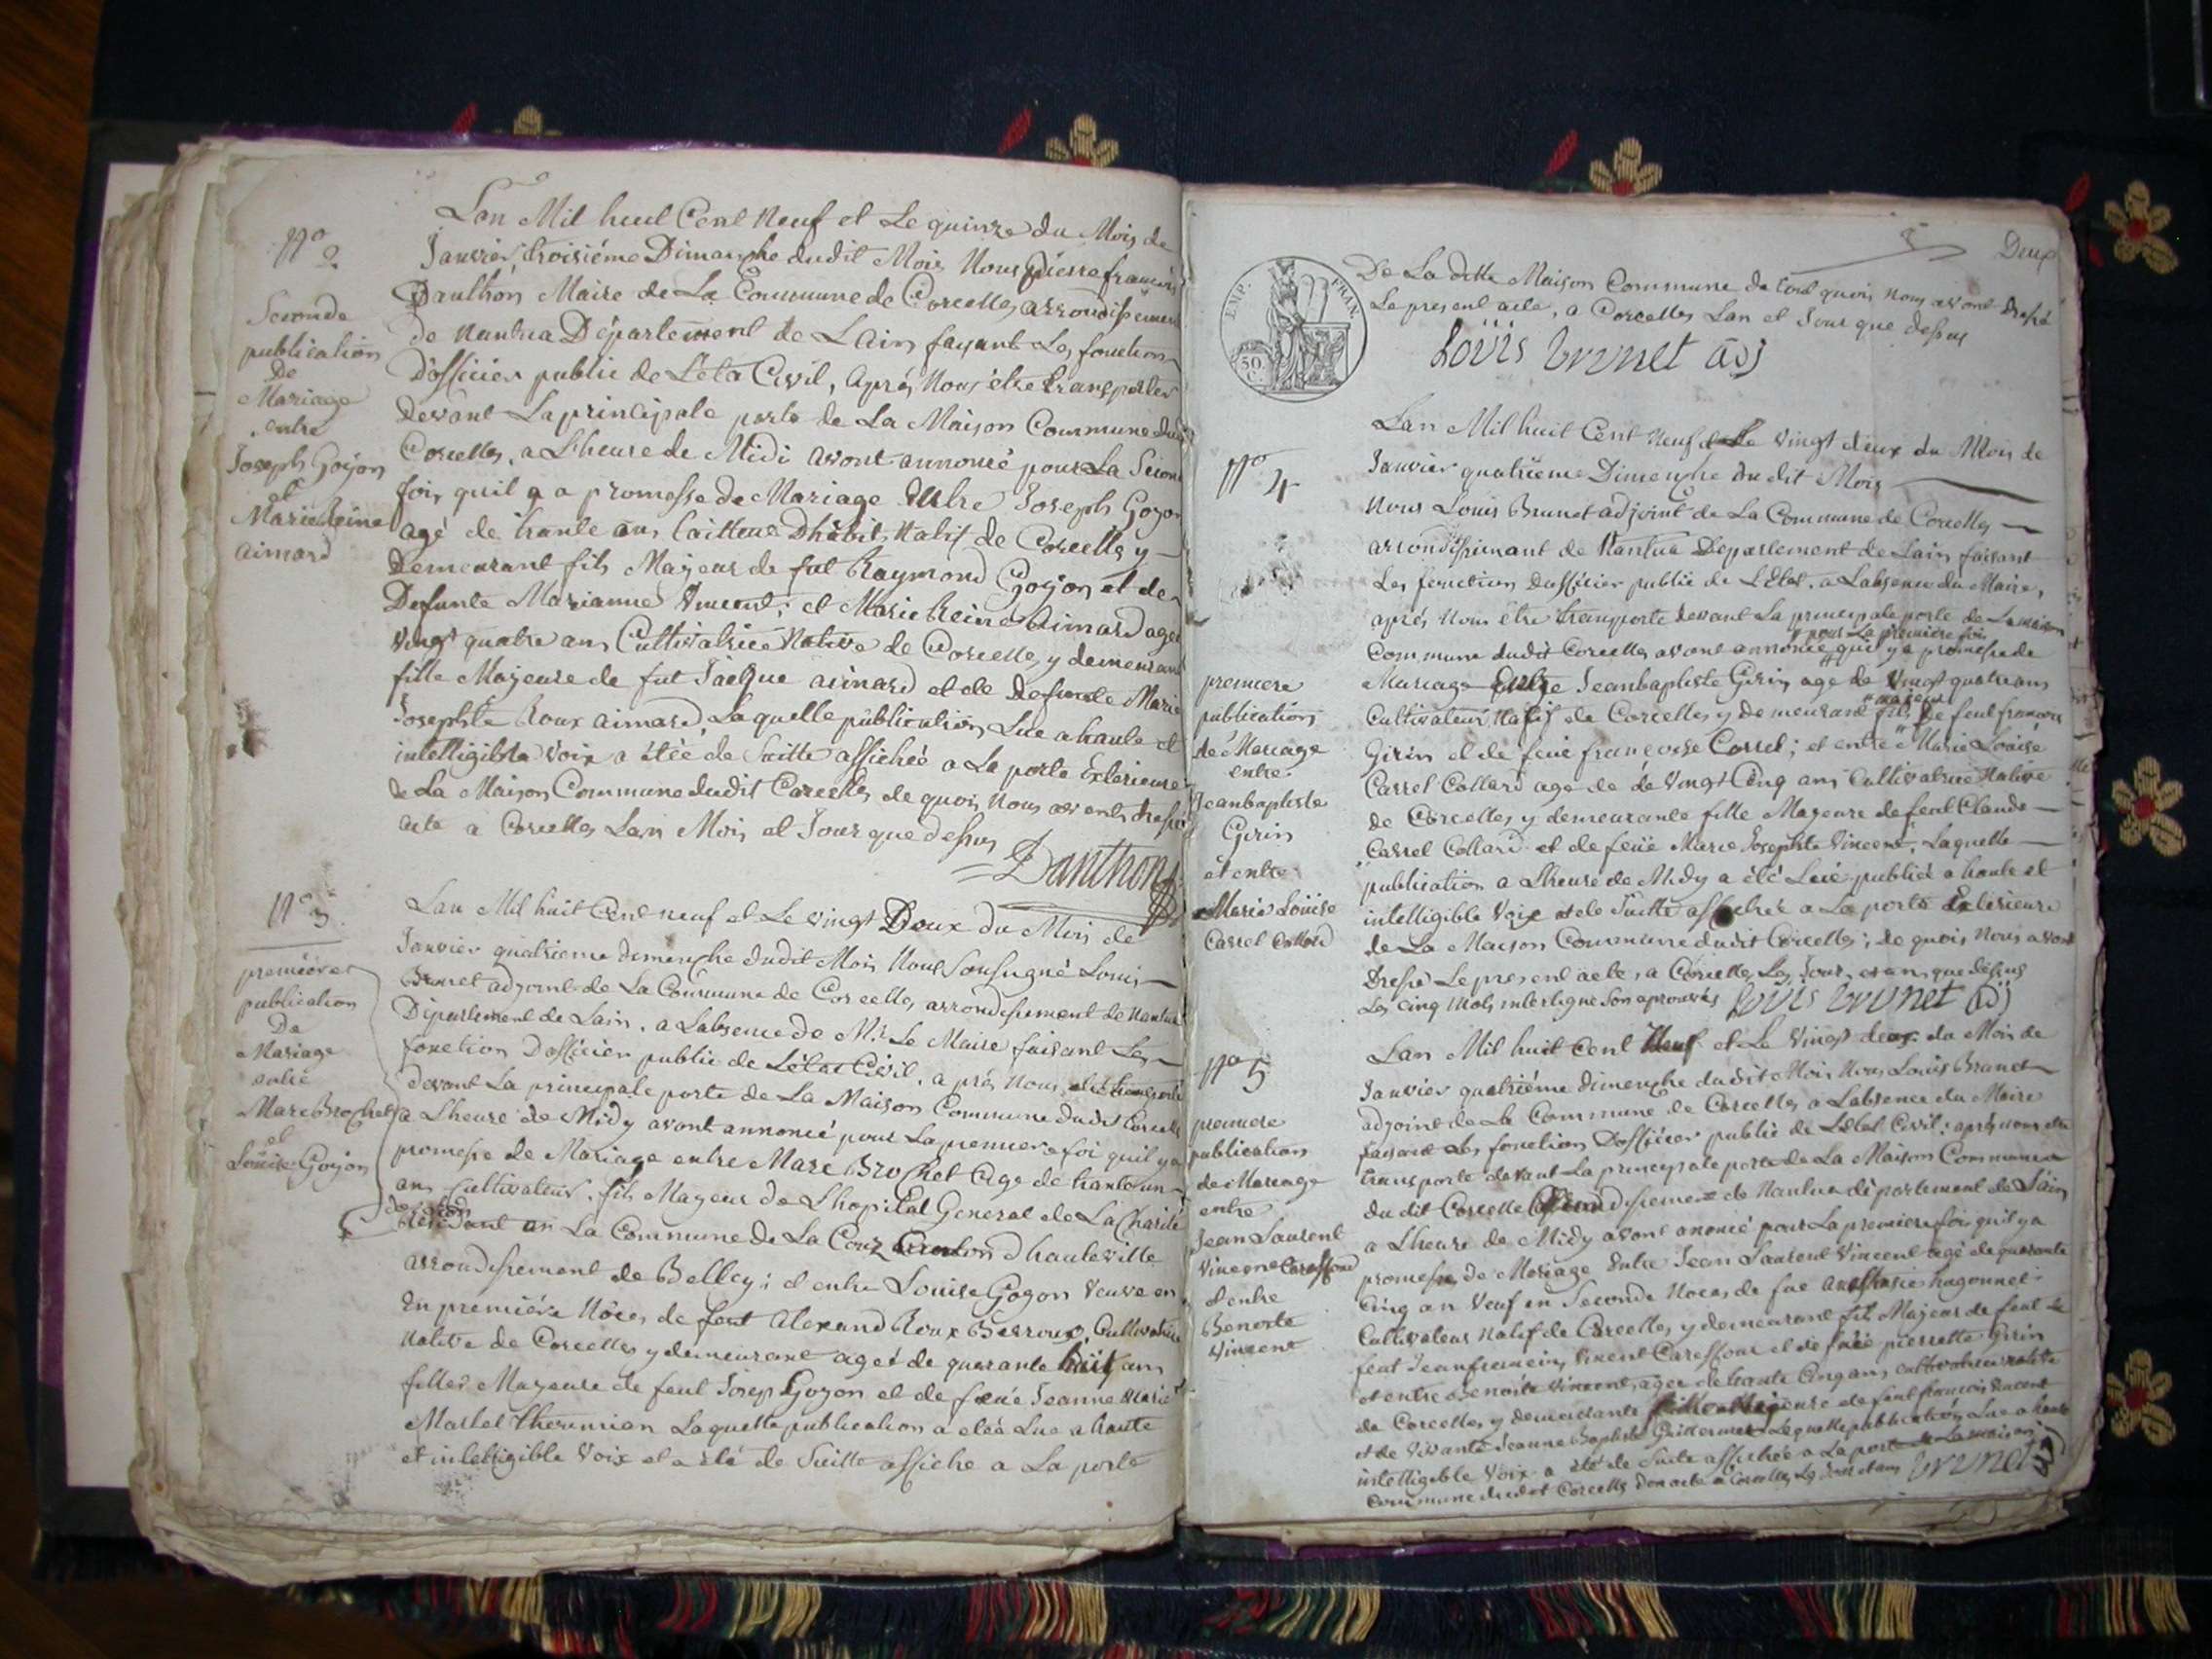 Nº 2
Seconde
publication
De
Mariage
entre
Joseph Goyon
et
Marie Reine
aimard
Lan Mil huit Cent Neuf et Le quinze du Mois de
Janvier troisiéme Dimanche dudit Mois Nous pierre françois
Danthon Maire de La Commune de Corcelles arrondissement
de Nantua Département de Lain fayant Les fonctions
Dofficier public de L'éta Civil, Aprés Nous étre transporter
devant La principale porte de La Maison Commune dudit
Corcelles, a Lheure de Midi avont annoncé pour La Seconde
fois, quil y a promesse de Mariage Entre Joseph Goyon
agé de trante ans tailleur Dhabit, Natif de Corcelles y
Demeurant fils Majeur de fut Raymond Goyon et de
Defunte Marianne Vincent; et Marie Reine Aimard agée
vingt quatre ans Cultivatrice Native de Corcelles y demeurant
fille Mageure de fut Jacque aimard et de defunte Marie
Josephte Roux aimard, Laquelle publication, Lue a haute et
intelligible Voix a étée de Suitte affichée a La porte Exterieure
de La Maison Commune dudit Corcelles de quois Nous avont dressé
acte a Corcelles Lan Mois et Jour que dessus
Danthon
Nº 3.
premiere
publication
De
Mariage
entre
Marc Brochet
et
Louise Goyon
Lan Mil huit Cent neuf et Le vingt Deux du Mois de
Janvier quatrieme dimenche dudit Mois Nous Sousigné Louis
Brunet adjoint de La Commune de Corcelles arrondissement de Nantua
Département de Lain, a Labsence de Mr Le Maire faisant Les
fonction Dofficier public de L'état Civil, a prés Nous etre transporté
devant La principale porte de La Maison Commune dudit Corcelles
a Lheure de Midy avont annoncé pour La premiere foi quil y a
promesse de Mariage entre Marc Brochet age de trante un
ans Cultivateur, fils Mageur de Lhopital General de La Charité
de Lion
Residant en La Commune de La Couz Canton dhauteville
arrondissement de Belley; et entre Louise Gogon Veuve en
En premiére Noces de feut Alexand Roux Berroux, Cultivatrice
Native de Corcelles y demeurant ageé de quarante huit ans
filles Mageure de feut Josep Goyon et de feuée Jeanne Marie
Martel Laquette publication a eteé Lue a haute
et intelligible Voix et a été de Suitte affiche a La porte
Deux
EMP. FRAN.
50 C.
De La ditte Maison Commune de tout quois nous avont dressé
Le present acte, a Corcelles Lan et Jour que dessus
Loüis brunet adj
Nº 4
premiere
publication
de Mariage
entre
Jeanbaptiste
Girin
et entre
Marie Loüise
Carrel Collard
Lan Mil huit Cent neuf et Le vingt deux du Mois de
Janvier quatriéme Dimenche du dit Mois
Nous Louis Brunet adjoint de La Commune de Corcelles
arrondissimant de Nantua Departement de Lain faisant
Les fonction Dofficier public de L'Etat, a Labsence du Maire,
aprés Nous étre transporte devant La principale porte de La maison
pour La premiere fois
Commune dudit Corcelles avont annoncée quil y a promesse de
Mariage Entre Jeanbaptiste Girin age de Vingt quatre ans
majeur
Cultivateur Natif de Corcelles y demeurant fils de feut francois
Girin et de feuë françoise Carrel; et entre Marie Loüise
Carrel Collard age de de Vingt Cinq ans Cultivatrice Native
de Corcelles y demeurante fille Mageure de feut Claude
Carrel Collard et de feüe Marie Josephte Vincent, Laquelle
publication a Lheure de Midy a été Lué publiée a haute et
intelligible Voix et de Suitte affichée a La porte Exterieure
de La Maison Commune dudit Corcelles; de quois Nous avont
Dressé Le present acte, a Corcelles Les Jour, et an, que dessus
Les Cinq Mots interligne Son aprouvés Loüis brunet adj
Nº 5
premiere
publication
de Mariage
entre
Jean Laurent
Vincent Careffour
et entre
Benoite
Vincent
Lan Mil huit Cent Neuf et Le Vingt deux du Mois de
Janvier quatriéme dimenche dudit Mois Nous Louis Brunet
adjoint de La Commune de Corcelles a Labsence du Maire
faisant Les fonction Dofficier public de L'Etat Civil; aprés nous etre
transporté devant La principale porte de La Maison Commune
du dit Corcelle arrondissement de Nantua département de Lain
a Lheure de Midy avont anoncé pour La premiere foi quil y a
promesse, de Mariage Entre Jean Laurent Vincent agé de quarante
Cinq an Veuf en Seconde Noces, de fue Anastasie hugonnet
Cultivateur Natif de Corcelles y demeurant fils Majeur de feut
feut Jean Vincent Careffour et de feüé pierrette Girin
et entre Benoite Vincent, agee de trante Cinq ans, cultivatrice native
de Corcelles y demeurante fille Mageure de feut francois Vincent
et de Vivante Jeanne Baptiste Laquelle publication Lue a haute
intelligible Voix a été de Suite affichée a La porte de La maison
Commune dudit Corcelles a Corcelles Les Jour et ans brunet adj